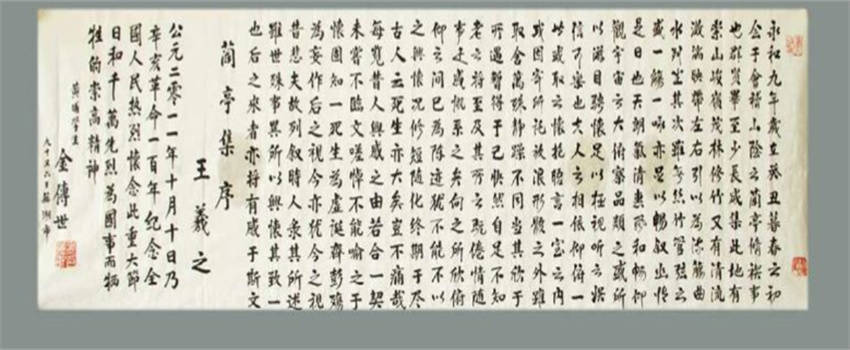 永和九年歲在癸丑暮春之初
会于會稽山陰之蘭亭脩禊事
也群賢畢至少長咸集此地有
崇山峻嶺茂林修竹又有清流
激湍映帶左右引以為流觴曲
水列坐其次雖無絲竹管弦之
盛一觴一咏亦足以暢叙幽情
是日也天朗氣清惠風和暢仰
觀宇宙之大俯察品類之盛所
以遊目騁懷足以極視听之娱
信可樂也夫人之相與俯仰一
世或取之懷抱晤言一室之内
或因寄所託放浪形骸之外雖
取舍萬殊静躁不同當其欣于
所遇暫得于己快然自足不知
老之將至及其所之既倦情隨
事迁感慨系之矣向之所欣俯
仰之间已為陈迹犹不能不以
之興懷况修短隨化終期于尽
古人云死生亦大矣豈不痛哉
每覽昔人興感之由若合一契
未嘗不臨文嗟悼不能喻之于
懷固知一死生為虚誕齊彭殤
為妄作后之視今亦犹今之視
昔悲夫故列叙時人录其所述
雖世殊事異所以興懷其致一
也后之來者亦将有感于斯文
蘭亭集序
王羲之
公元二零一一年十月十日乃
辛亥革命一百年紀念全
國人民热烈懷念此重大節
日和千萬先烈為國事而牺
牲的崇高精神
金傳世